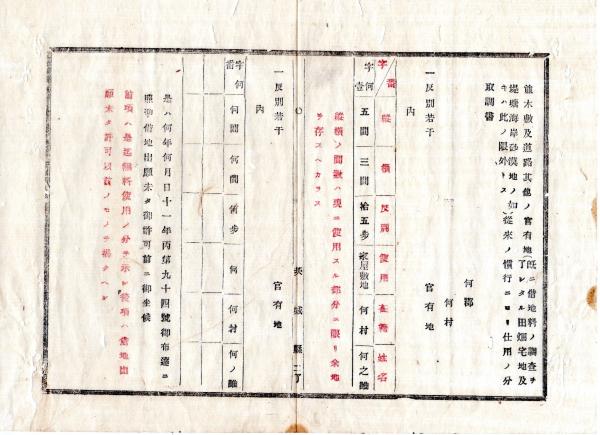 並木敷及道路其他ノ官有地(既ニ借地料ノ調査ヲ
了シタル田畑宅地及
堤塘海岸砂漠地ノ如
キハ此ノ限外トス)從來ノ慣行ニヨリ仕用ノ分
取調書
何郡
何村
一反別若干 官有地
內
字番 縱 橫 反別 使用 在籍 姓名
字何壹 五間 三間 拾五步 家屋敷地 何村 何之誰
縱橫ノ間數ハ現ニ使用スル部分ニ限リ余地
ヲ存スヘカラス
茨城縣
一反別若干 官有地
內
字何番 何間 何間 何步 何 何村 何ノ誰
是ハ何年何月日十一年丙第九十四號御布達ニ
照準借地出願未タ御許可前ニ御坐候
前項ハ是迄無料使用ノ分ヲ示シ後項ハ借地出
願未タ許可以前ノモノヲ揭クヘシ